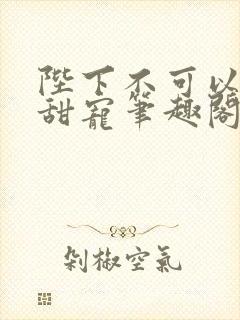 陛下不可以
甜寵筆趣閣
剁椒空氣